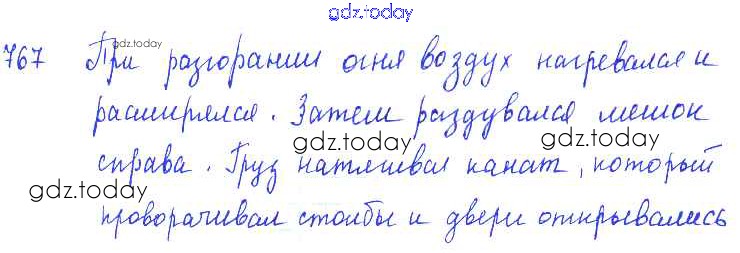 gdz.today
767 При разгорании огня воздух нагревался и
gdz.today
расширялся. Затем раздувался мешок
gdz.today
справа. Груз натягивал канат, который
gdz.today
проворачивал столбы и двери открывались